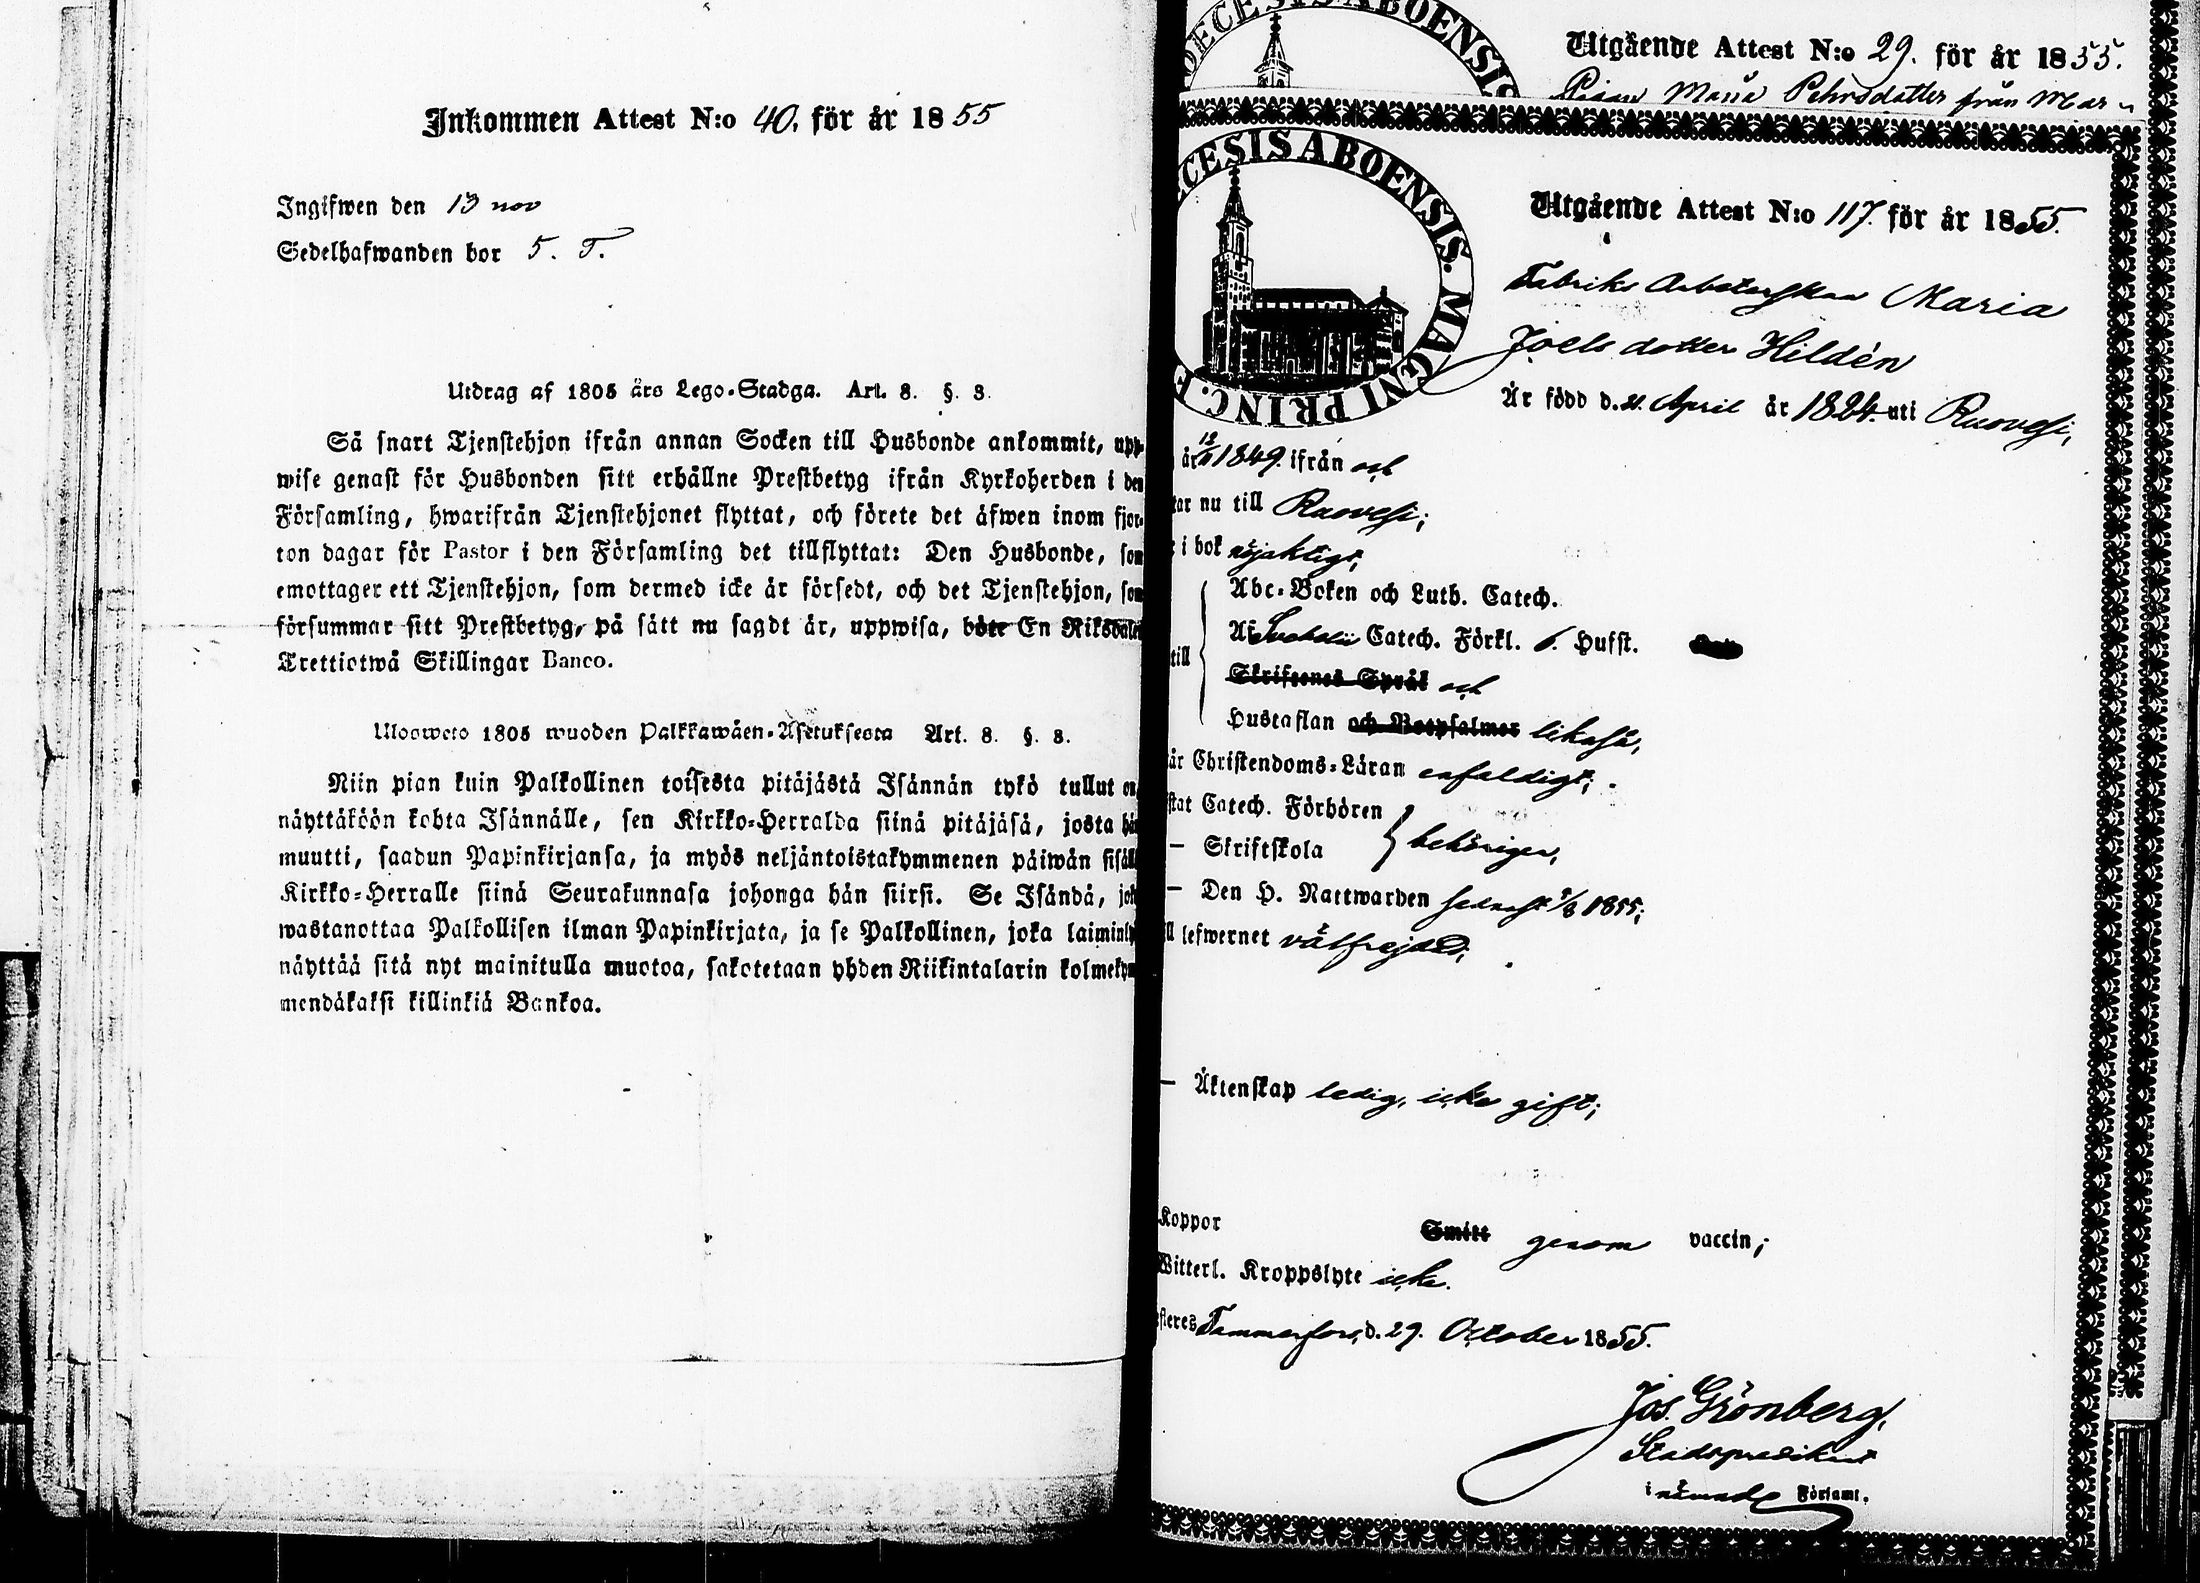 Inkommen Attest N:o 40. för år 1855
Ingifwen den 13 nov
Sedelhafwanden bor 5. T.
Utdrag af 1805 års Lego-Stadga. Art. 8. §. 3.
Så snart Tjenstehjon ifrån annan Socken till Husbonde ankommit, upp-
wise genast för Husbonden sitt erhållne Prestbetyg ifrån Kyrkoherden i den
Församling, hwarifrån Tjenstehjonet flyttat, och förete det äfwen inom fjor-
ton dagar för Pastor i den Församling det tillflyttat: Den Husbonde, som
emottager ett Tjenstehjon, som dermed icke är försedt, och det Tjenstehjon, som
försummar sitt Prestbetyg, på sätt nu sagdt är, uppwisa, böte En Riksdaler
Trettiotwå Skillingar Banco.
Ulosweto 1805 wuoden Palkkawäen-Asetuksesta Art. 8. §. 3.
Niin pian kuin Palkollinen toisesta pitäjästä Isännän tykö tullut on,
näyttäköön kohta Isännälle, sen Kirkko-Herralda siinä pitäjäsä, josta hän
muutti, saadun Papinkirjansa, ja myös neljäntoistakymmenen päiwän sisällä
Kirkko-Herralle siinä Seurakunnasa johonga hän siirsi. Se Isändä, joka
wastanottaa Palkollisen ilman Papinkirjata, ja se Palkollinen, joka laiminly
näyttää sitä nyt mainitulla muotoa, sakotetaan yhden Riikintalarin kolmekym
mendäkaksi killinkiä Bankoa.
Utgående Attest N:o 29. för år 1855.
Pigan Maria Pehrsdotter från Mar
DIOECESIS ABOENSIS
Utgående Attest N:o 117. för år 1855.
CESIS ABOENSIS. MAGNI PRINC. F
Fabriks Arbeterskan Maria
Joels dotter Hildén
Är född d. 21 April år 1824 uti Ruovesi,
år 1849. ifrån och
tar nu till Ruovesi;
i bok nöjaktigt,
Abc-Boken och Luth. Catech.
Af Svebelii Catech. Förkl. o. Hufst.
till
Skriftenes Språk och
Hustaflan och Botpsalmer likaså,
är Christendoms-Läran enfaldigt;
stat Catech. Förhören
— Skriftskola } behörigen,
— Den H. Nattwarden senast 5/8 1855;
ll lefwernet välfrejdad;
— Äktenskap ledig, icke gift;
Koppor Smitt genom vaccin;
Witterl. Kroppslyte icke.
esteres Tammerfors, d. 29. October 1855.
Jos. Grönberg,
Stadspredikant
i nämnde Församl.